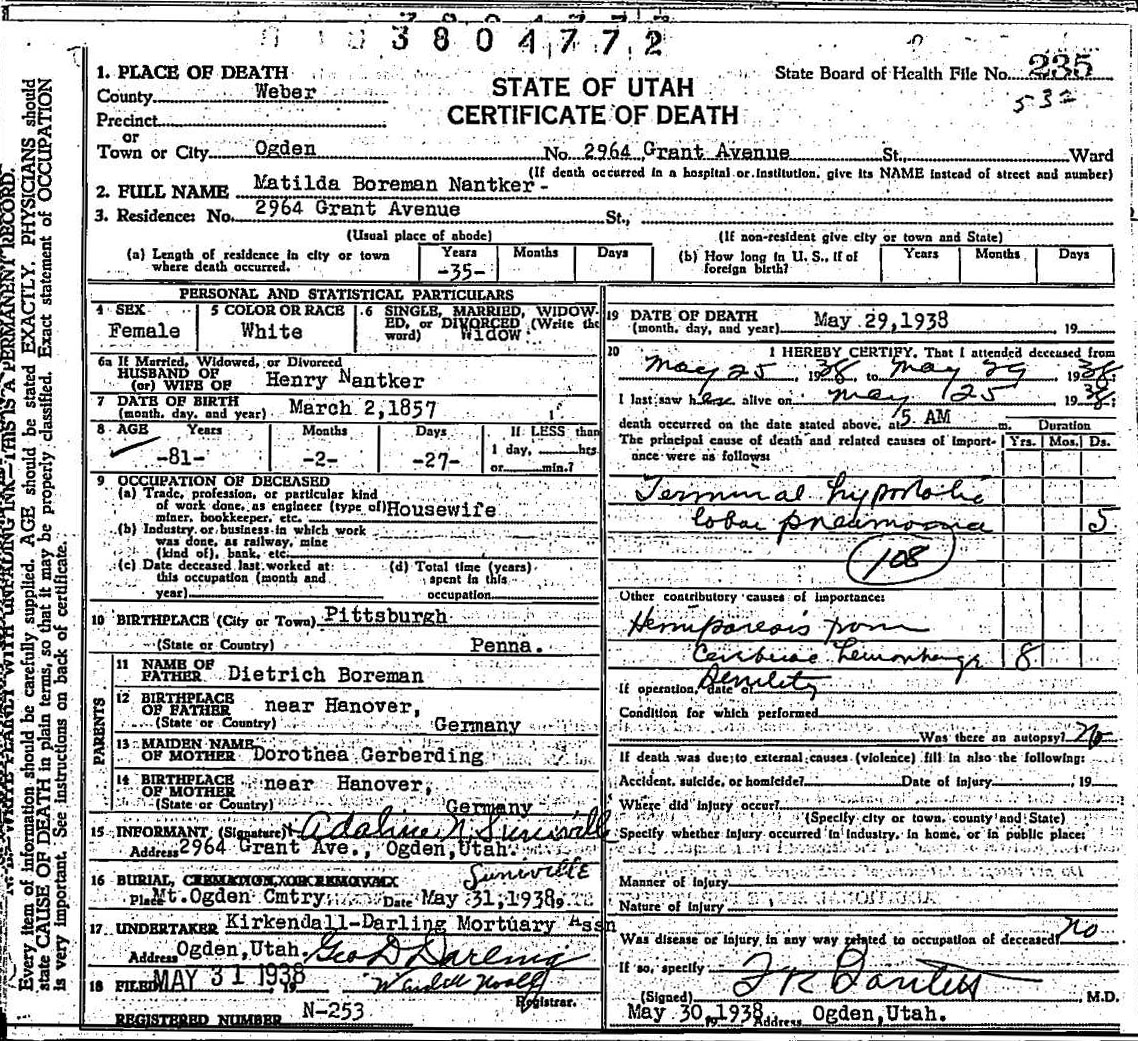 3804772
1. PLACE OF DEATH
County Weber
Precinct
or
Town or City Ogden No. 2964 Grant Avenue St., Ward
STATE OF UTAH
CERTIFICATE OF DEATH
State Board of Health File No. 235
532
(If death occurred in a hospital or institution, give its NAME instead of street and number)
2. FULL NAME Matilda Boreman Nantker -
3. Residence: No. 2964 Grant Avenue St.,
(Usual place of abode) (If non-resident give city or town and State)
(a) Length of residence in city or town where death occurred. Years -35- Months Days
(b) How long in U. S., if of foreign birth? Years Months Days
PERSONAL AND STATISTICAL PARTICULARS
4 SEX Female
5 COLOR OR RACE White
6 SINGLE, MARRIED, WIDOWED, or DIVORCED (Write the word) Widow
6a If Married, Widowed, or Divorced
HUSBAND OF
(or) WIFE OF Henry Nantker
7 DATE OF BIRTH
(month, day, and year) March 2, 1857
8 AGE Years Months Days If LESS than
-81- -2- -27- 1 day, hrs
or min.?
9 OCCUPATION OF DECEASED
(a) Trade, profession, or particular kind
of work done, as engineer (type of) Housewife
miner, bookkeeper, etc.
(b) Industry or business in which work
was done, as railway, mine
(kind of), bank, etc.
(c) Date deceased last worked at
this occupation (month and
year)
(d) Total time (years)
spent in this
occupation
10 BIRTHPLACE (City or Town) Pittsburgh
(State or Country) Penna.
PARENTS
11 NAME OF
FATHER Dietrich Boreman
12 BIRTHPLACE
OF FATHER near Hanover,
(State or Country) Germany
13 MAIDEN NAME
OF MOTHER Dorothea Gerberding
14 BIRTHPLACE
OF MOTHER near Hanover,
(State or Country) Germany
15 INFORMANT (Signature) Adaline N. Suniville
Address 2964 Grant Ave., Ogden, Utah.
Suniville
16 BURIAL, CREMATION, OR REMOVAL
Place Mt. Ogden Cmtry. Date May 31, 1938 19
17 UNDERTAKER Kirkendall-Darling Mortuary Assn
Address Ogden, Utah. Geo D Darling
18 FILED MAY 31 1938 19
Registrar.
REGISTERED NUMBER N-253
19 DATE OF DEATH
(month, day, and year) May 29, 1938 19
20 I HEREBY CERTIFY, That I attended deceased from
May 25, 1938, to May 29 1938
I last saw her alive on May 25 1938
death occurred on the date stated above, at 5 AM m.
The principal cause of death and related causes of importance were as follows:
Duration
Yrs. Mos. Ds.
Terminal hypostatic
lobar pneumonia 5
108
Other contributory causes of importance:
Hemiparesis from
Cerebral hemorrhage 8
Senility
If operation, date of
Condition for which performed
Was there an autopsy? No
If death was due to external causes (violence) fill in also the following:
Accident, suicide, or homicide? Date of injury 19
Where did injury occur?
(Specify city or town, county and State)
Specify whether injury occurred in industry, in home, or in public place:
Manner of injury
Nature of injury
Was disease or injury in any way related to occupation of deceased? No
If so, specify
(Signed) M.D.
May 30, 1938 19 Address Ogden, Utah.
WRITE PLAINLY WITH UNFADING INK—THIS IS A PERMANENT RECORD.
Every item of information should be carefully supplied. AGE should be stated EXACTLY. PHYSICIANS should
state CAUSE OF DEATH in plain terms, so that it may be properly classified. Exact statement of OCCUPATION
is very important. See instructions on back of certificate.